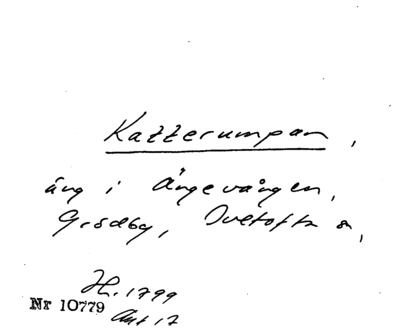 Katterumpan,
äng i Ängevången,
Grödby, Ivetofta sn,
H. 1799
Nr 10779 Akt 17